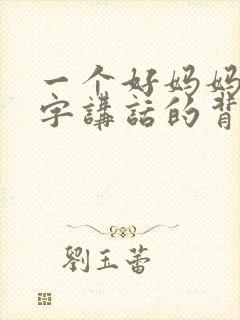 一个好妈妈
字講話的背
劉玉蕾